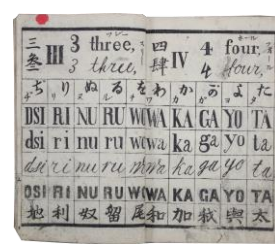 三 III 3 three, 四 IV 4 four,
叄 3 three, 肆 4 four,
ぢ り ぬ る を わ か が よ た
DSI RI NU RU WO WA KA GA YO TA
dsi ri nu ru wo wa ka ga yo ta
dsi ri nu ru wo wa ka ga yo ta
DSI RI NU RU WO WA KA GA YO TA
地 利 奴 留 尾 和 加 我 與 太